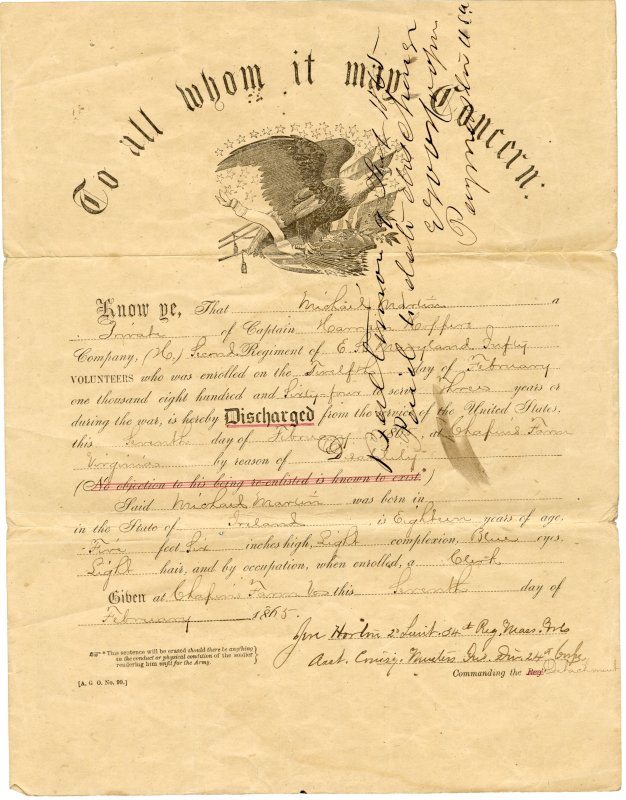 To all whom it may Concern:
Know ye, That Michael Martin a
Private of Captain
Company, (H.) Second Regiment of E. S. Maryland Infty
VOLUNTEERS who was enrolled on the Twelfth day of February
one thousand eight hundred and Sixty four to serve Three years or
during the war, is hereby Discharged from the service of the United States,
this Seventh day of February at Chapins Farm
Virginia by reason of
(No objection to his being re-enlisted is known to exist.*)
Said Michael Martin was born in
in the State of Ireland, is Eighteen years of age,
Five feet Six inches high, Light complexion, Blue eyes,
Light hair, and by occupation, when enrolled, a Clerk
Given at Chapins Farm Va this Seventh day of
February 1865.
2d Lieut. 34th Reg. Mass. Vols
Asst. Comisy. Musters Ind. Div. 24th Corps
Commanding the Reg. Detachment
* This sentence will be erased should there be anything
in the conduct or physical condition of the soldier
rendering him unfit for the Army.
[A. G. O. No. 99.]
1865
Paid
Paymaster USA